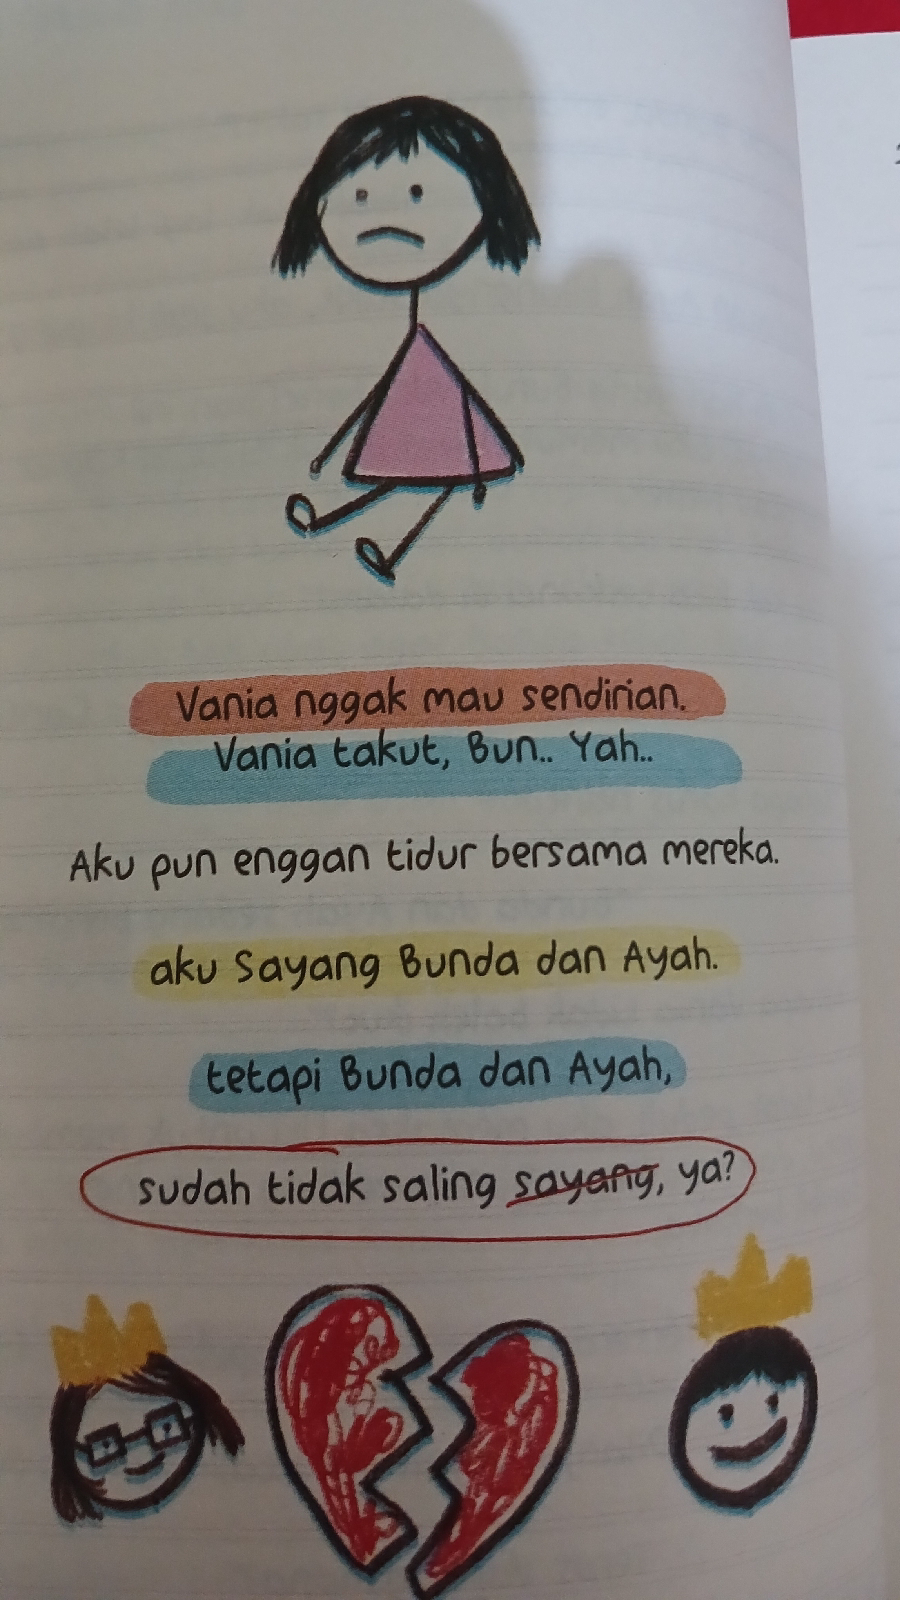 Vania nggak mau sendirian.
Vania takut, Bun.. Yah..
Aku pun enggan tidur bersama mereka.
aku Sayang Bunda dan Ayah.
tetapi Bunda dan Ayah,
sudah tidak saling sayang, ya?